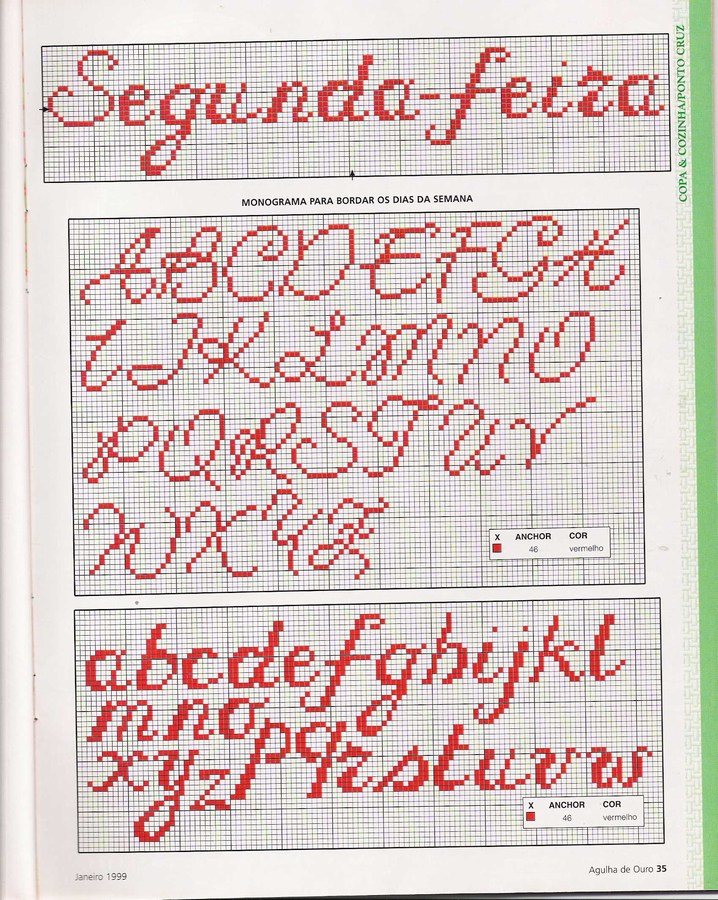 COPA & COZINHA/PONTO CRUZ
Segunda-feira
MONOGRAMA PARA BORDAR OS DIAS DA SEMANA
A B C D E F G H
I J K L M N O
P Q R S T U V
W X Y Z
X ANCHOR COR
46 vermelho
a b c d e f g h i j k l
m n o p q r s t u v w
x y z
X ANCHOR COR
46 vermelho
Janeiro 1999
Agulha de Ouro 35